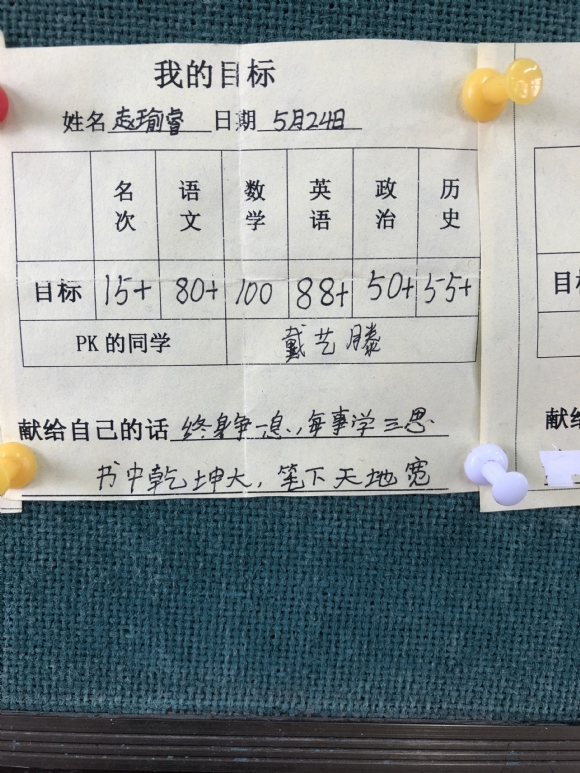 我的目标
姓名 赵瑜睿 日期 5月24日
名次 语文 数学 英语 政治 历史
目标 15+ 80+ 100 88+ 50+ 55+
PK的同学 戴艺滕
献给自己的话 终身争一息,每事学三思.
书中乾坤大,笔下天地宽
目
献给